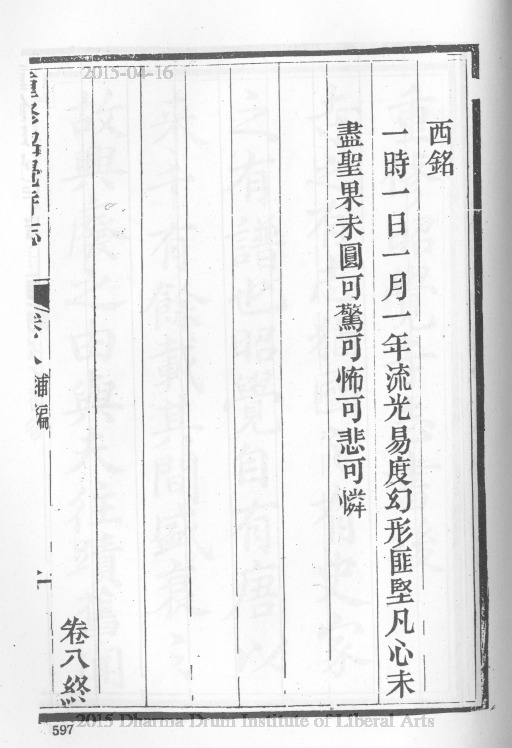 2015-04-16
西銘
一時一日一月一年流光易度幻形匪堅凡心未
盡聖果未圓可驚可怖可悲可憐
卷八終
重修昭覺寺志
卷八補編
597
2015 Dharma Drum Institute of Liberal Arts